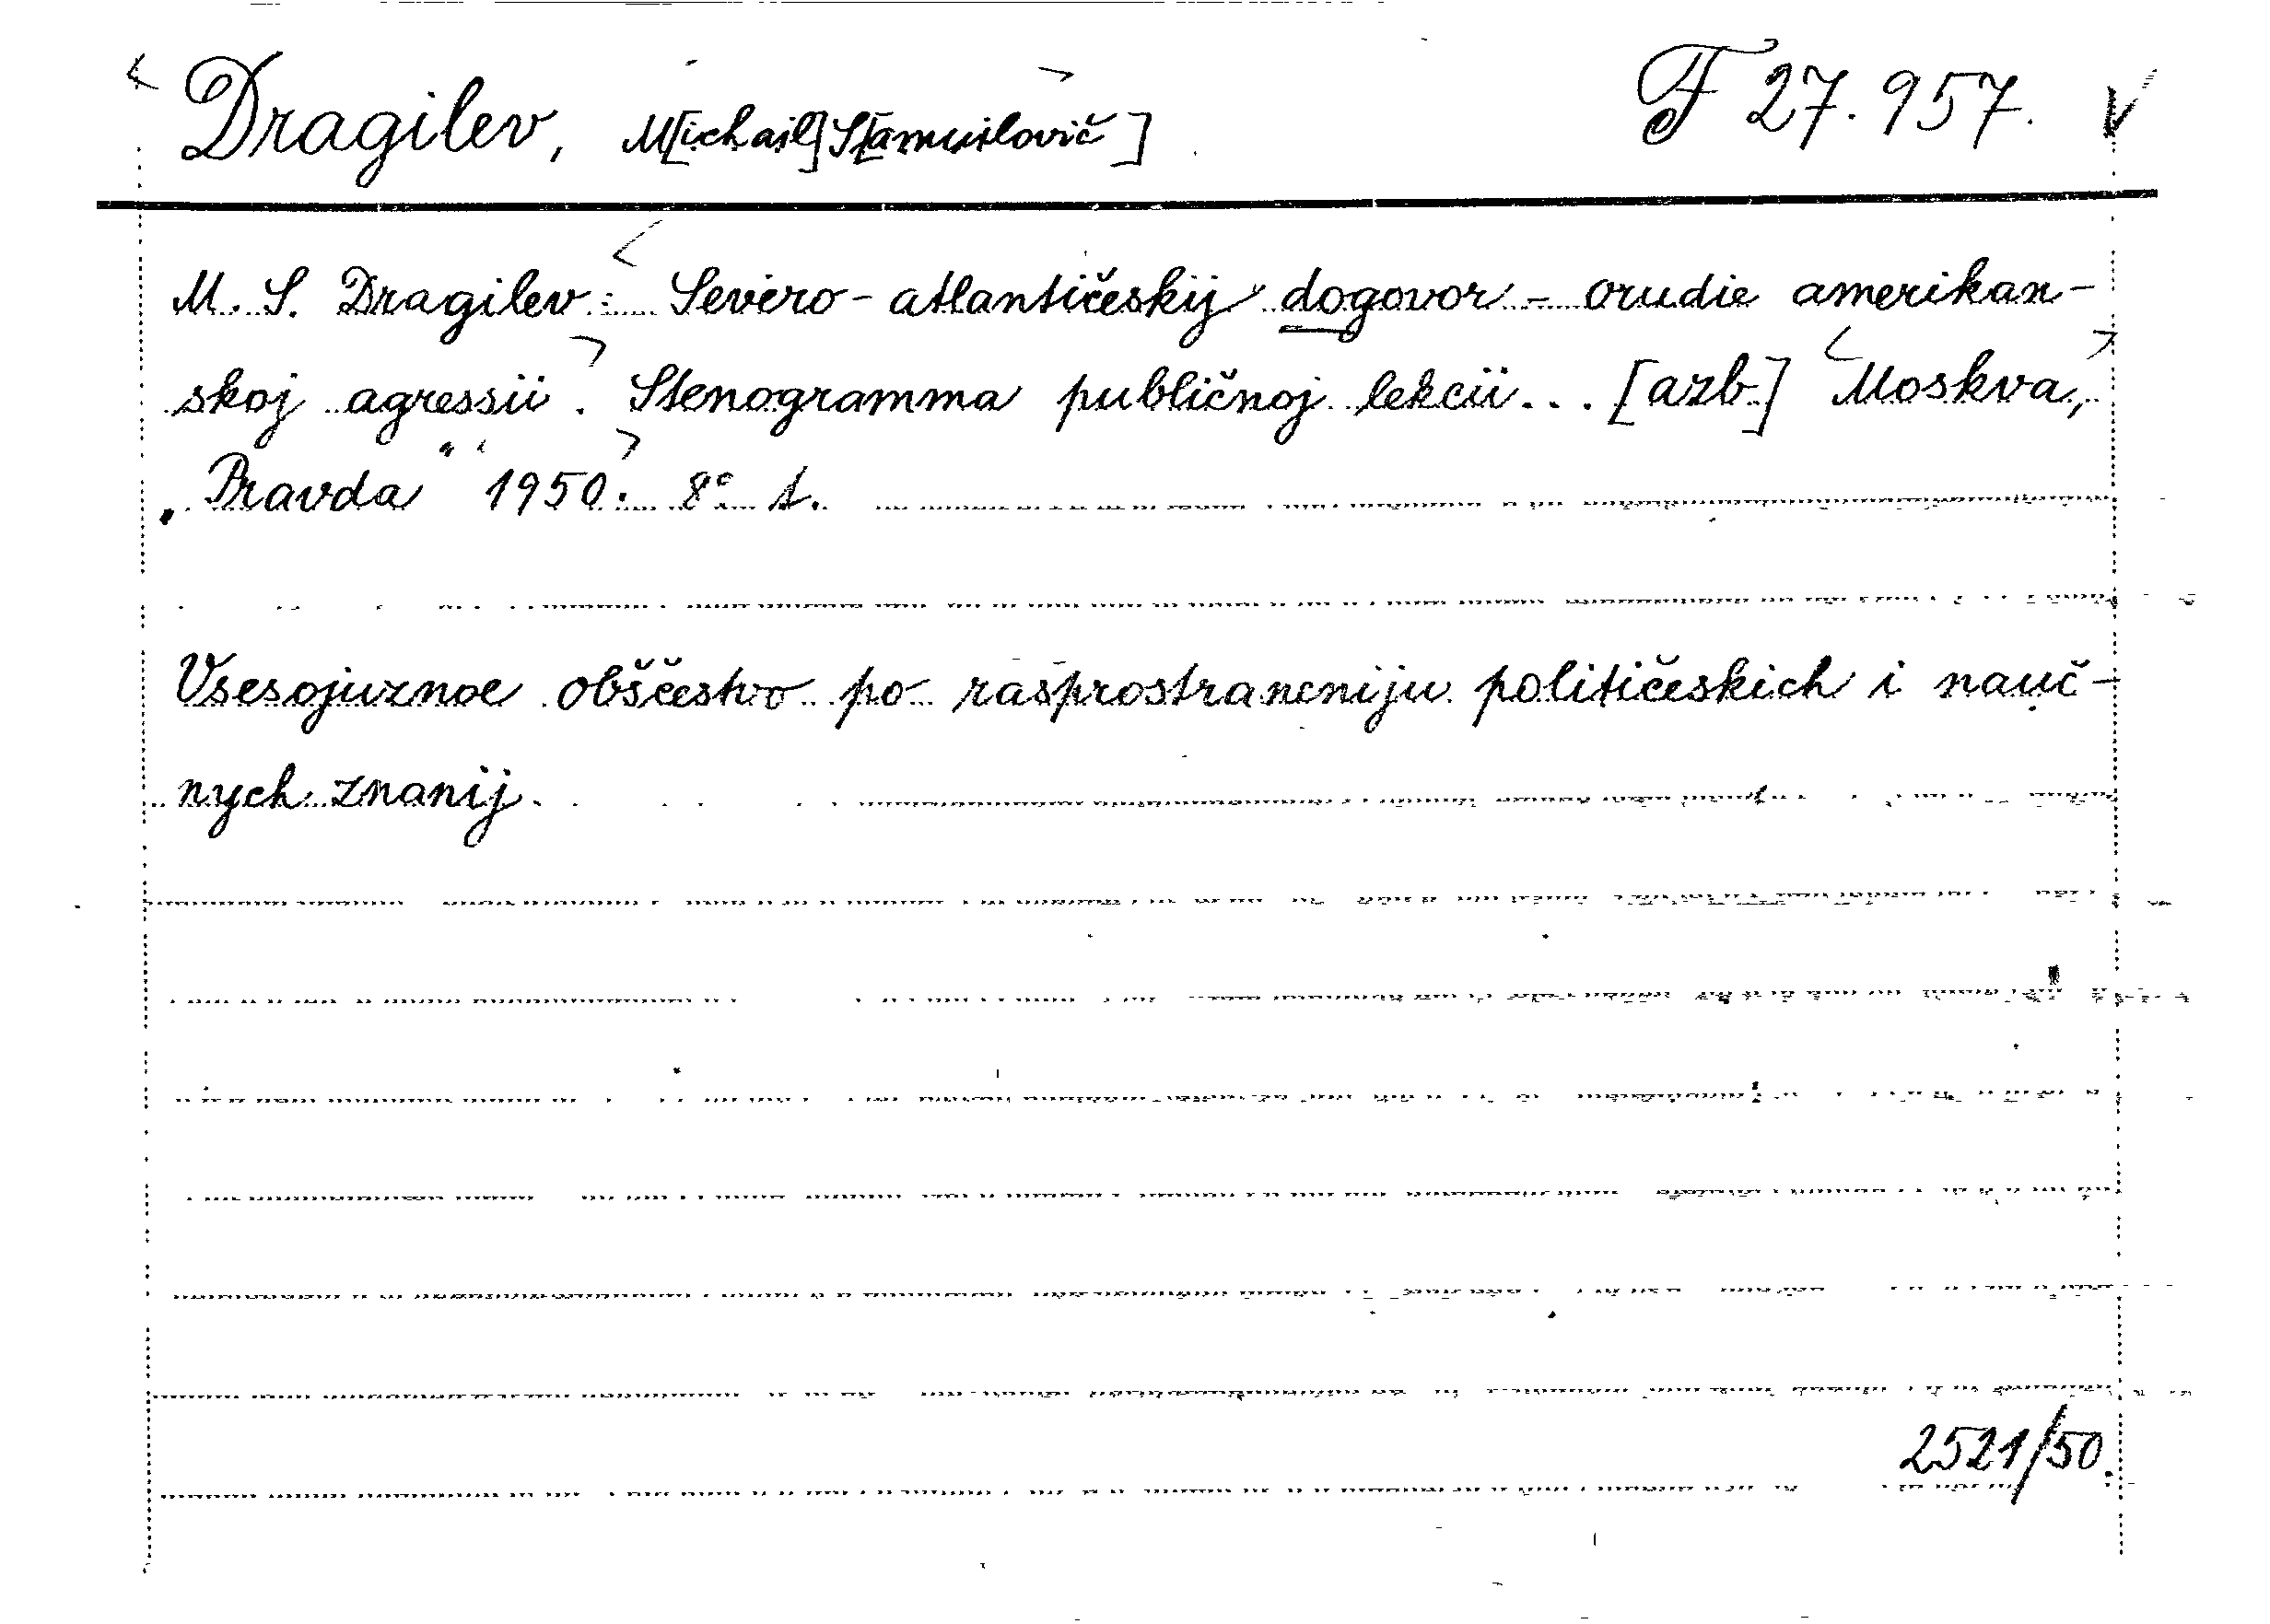 Dragilev, M[ichail] S[amuilovič] F 27.957.
M. S. Dragilev: Severo-atlantičeskij dogovor - orudie amerikan-
skoj agressii. Stenogramma publičnoj lekcii... [azb.] Moskva,
„Pravda“ 1950. 8° 1.
Vsesojuznoe obščestvo po rasprostraneniju političeskich i nauč-
nych znanij.
2521/50.